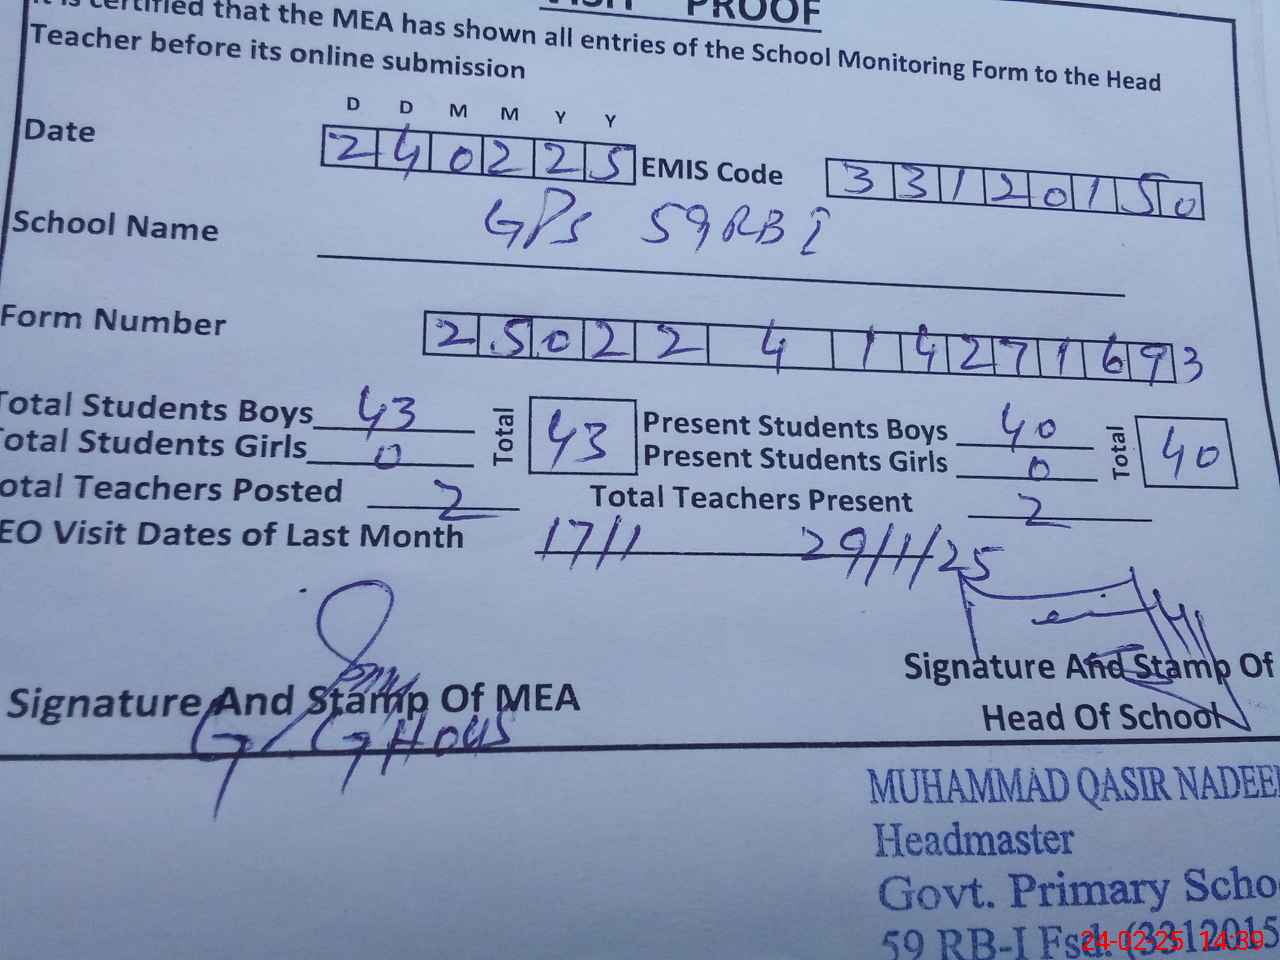 VISIT PROOF
It is certified that the MEA has shown all entries of the School Monitoring Form to the Head
Teacher before its online submission
D D M M Y Y
Date 2 4 0 2 2 5 EMIS Code 3 3 1 2 0 1 5 0
School Name GPS 59 RB I
Form Number 2 5 0 2 2 4 1 4 2 7 1 6 9 3
Total Students Boys 43 Total 43 Present Students Boys 40 Total 40
Total Students Girls 0 Present Students Girls 0
otal Teachers Posted 2 Total Teachers Present 2
EO Visit Dates of Last Month 17/1 29/1/25
Signature And Stamp Of MEA
G/GHOUS
Signature And Stamp Of
Head Of School
MUHAMMAD QASIR NADEE
Headmaster
Govt. Primary Scho
59 RB-I Fsd. (3312015
24-02-25 14:39